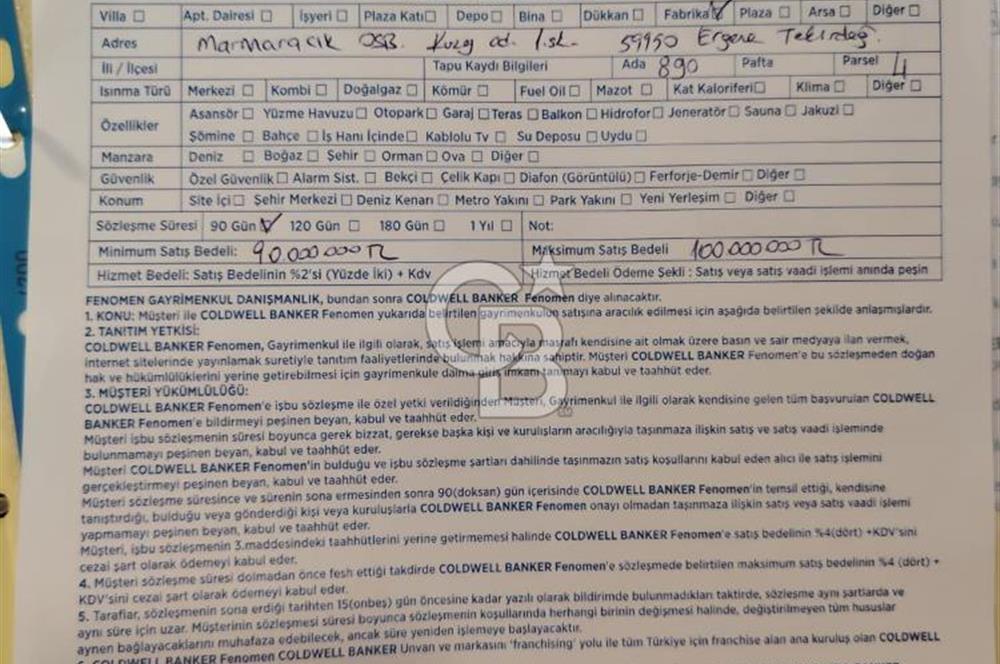 Villa ☐ Apt. Dairesi ☐ İşyeri ☐ Plaza Katı ☐ Depo ☐ Bina ☐ Dükkan ☐ Fabrika ☑ Plaza ☐ Arsa ☐ Diğer ☐
Adres Marmaracık OSB. Kuzey cd. 1.sk. 59950 Ergene Tekirdağ.
İli / İlçesi Tapu Kaydı Bilgileri Ada 890 Pafta Parsel 4
Isınma Türü Merkezi ☐ Kombi ☐ Doğalgaz ☐ Kömür ☐ Fuel Oil ☐ Mazot ☐ Kat Kaloriferi ☐ Klima ☐ Diğer ☐
Asansör ☐ Yüzme Havuzu ☐ Otopark ☐ Garaj ☐ Teras ☐ Balkon ☐ Hidrofor ☐ Jeneratör ☐ Sauna ☐ Jakuzi ☐
Özellikler
Şömine ☐ Bahçe ☐ İş Hanı İçinde ☐ Kablolu Tv ☐ Su Deposu ☐ Uydu ☐
Manzara Deniz ☐ Boğaz ☐ Şehir ☐ Orman ☐ Ova ☐ Diğer ☐
Güvenlik Özel Güvenlik ☐ Alarm Sist. ☐ Bekçi ☐ Çelik Kapı ☐ Diafon (Görüntülü) ☐ Ferforje-Demir ☐ Diğer ☐
Konum Site İçi ☐ Şehir Merkezi ☐ Deniz Kenarı ☐ Metro Yakını ☐ Park Yakını ☐ Yeni Yerleşim ☐ Diğer ☐
Sözleşme Süresi 90 Gün ☑ 120 Gün ☐ 180 Gün ☐ 1 Yıl ☐ Not:
Minimum Satış Bedeli: 90.000.000 TL Maksimum Satış Bedeli 100.000.000 TL
Hizmet Bedeli: Satış Bedelinin %2'si (Yüzde İki) + Kdv Hizmet Bedeli Ödeme Şekli : Satış veya satış vaadi işlemi anında peşin
FENOMEN GAYRİMENKUL DANIŞMANLIK, bundan sonra COLDWELL BANKER Fenomen diye alınacaktır.
1. KONU: Müşteri ile COLDWELL BANKER Fenomen yukarıda belirtilen gayrimenkulün satışına aracılık edilmesi için aşağıda belirtilen şekilde anlaşmışlardır.
2. TANITIM YETKİSİ:
COLDWELL BANKER Fenomen, Gayrimenkul ile ilgili olarak, satış işlemi amacıyla masrafı kendisine ait olmak üzere basın ve sair medyaya ilan vermek,
internet sitelerinde yayınlamak suretiyle tanıtım faaliyetlerinde bulunmak hakkına sahiptir. Müşteri COLDWELL BANKER Fenomen'e bu sözleşmeden doğan
hak ve hükümlülüklerini yerine getirebilmesi için gayrimenkule daima giriş imkanı tanımayı kabul ve taahhüt eder.
3. MÜŞTERİ YÜKÜMLÜLÜĞÜ:
COLDWELL BANKER Fenomen'e işbu sözleşme ile özel yetki verildiğinden Müşteri, Gayrimenkul ile ilgili olarak kendisine gelen tüm başvuruları COLDWELL
BANKER Fenomen'e bildirmeyi peşinen beyan, kabul ve taahhüt eder.
Müşteri işbu sözleşmenin süresi boyunca gerek bizzat, gerekse başka kişi ve kuruluşların aracılığıyla taşınmaza ilişkin satış ve satış vaadi işleminde
bulunmamayı peşinen beyan, kabul ve taahhüt eder.
Müşteri COLDWELL BANKER Fenomen'in bulduğu ve işbu sözleşme şartları dahilinde taşınmazın satış koşullarını kabul eden alıcı ile satış işlemini
gerçekleştirmeyi peşinen beyan, kabul ve taahhüt eder.
Müşteri sözleşme süresince ve sürenin sona ermesinden sonra 90(doksan) gün içerisinde COLDWELL BANKER Fenomen'in temsil ettiği, kendisine
tanıştırdığı, bulduğu veya gönderdiği kişi veya kuruluşlarla COLDWELL BANKER Fenomen onayı olmadan taşınmaza ilişkin satış veya satış vaadi işlemi
yapmamayı peşinen beyan, kabul ve taahhüt eder.
Müşteri, işbu sözleşmenin 3.maddesindeki taahhütlerini yerine getirmemesi halinde COLDWELL BANKER Fenomen'e satış bedelinin %4(dört) +KDV'sini
cezai şart olarak ödemeyi kabul eder.
4. Müşteri sözleşme süresi dolmadan önce fesh ettiği takdirde COLDWELL BANKER Fenomen'e sözleşmede belirtilen maksimum satış bedelinin %4 (dört) +
KDV'sini cezai şart olarak ödemeyi kabul eder.
5. Taraflar, sözleşmenin sona erdiği tarihten 15(onbeş) gün öncesine kadar yazılı olarak bildirimde bulunmadıkları taktirde, sözleşme aynı şartlarda ve
aynı süre için uzar. Müşterinin sözleşmesi süresi boyunca sözleşmenin koşullarında herhangi birinin değişmesi halinde, değiştirilmeyen tüm hususlar
aynen bağlayacaklarını muhafaza edebilecek, ancak süre yeniden işlemeye başlayacaktır.
COLDWELL BANKER Fenomen COLDWELL BANKER Unvan ve markasını 'franchising' yolu ile tüm Türkiye için franchise alan ana kuruluş olan COLDWELL